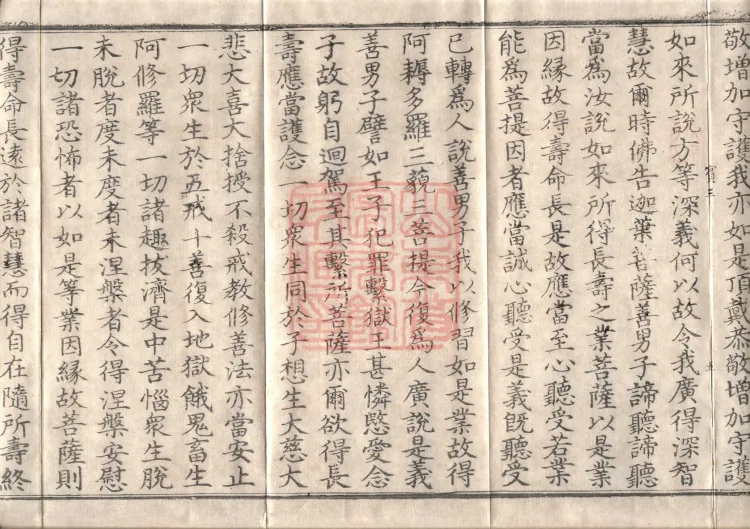 敬增加守護我亦如是頂戴恭敬增加守護
如來所說方等深義何以故令我廣得深智
慧故爾時佛告迦葉菩薩善男子諦聽諦聽
當爲汝說如來所得長壽之業菩薩以是業
因緣故得壽命長是故應當至心聽受若業
能爲菩提因者應當誠心聽受是義旣聽受
已轉爲人說善男子我以修習如是業故得
阿耨多羅三藐三菩提今復爲人廣說是義
善男子譬如王子犯罪繫獄王甚憐愍愛念
子故躬自迴駕至其繫所菩薩亦爾欲得長
壽應當護念一切衆生同於子想生大慈大
悲大喜大捨授不殺戒敎修善法亦當安止
一切衆生於五戒十善復入地獄餓鬼畜生
阿修羅等一切諸趣拔濟是中苦惱衆生脫
未脫者度未度者未涅槃者令得涅槃安慰
一切諸恐怖者以如是等業因緣故菩薩則
得壽命長遠於諸智慧而得自在隨所壽終